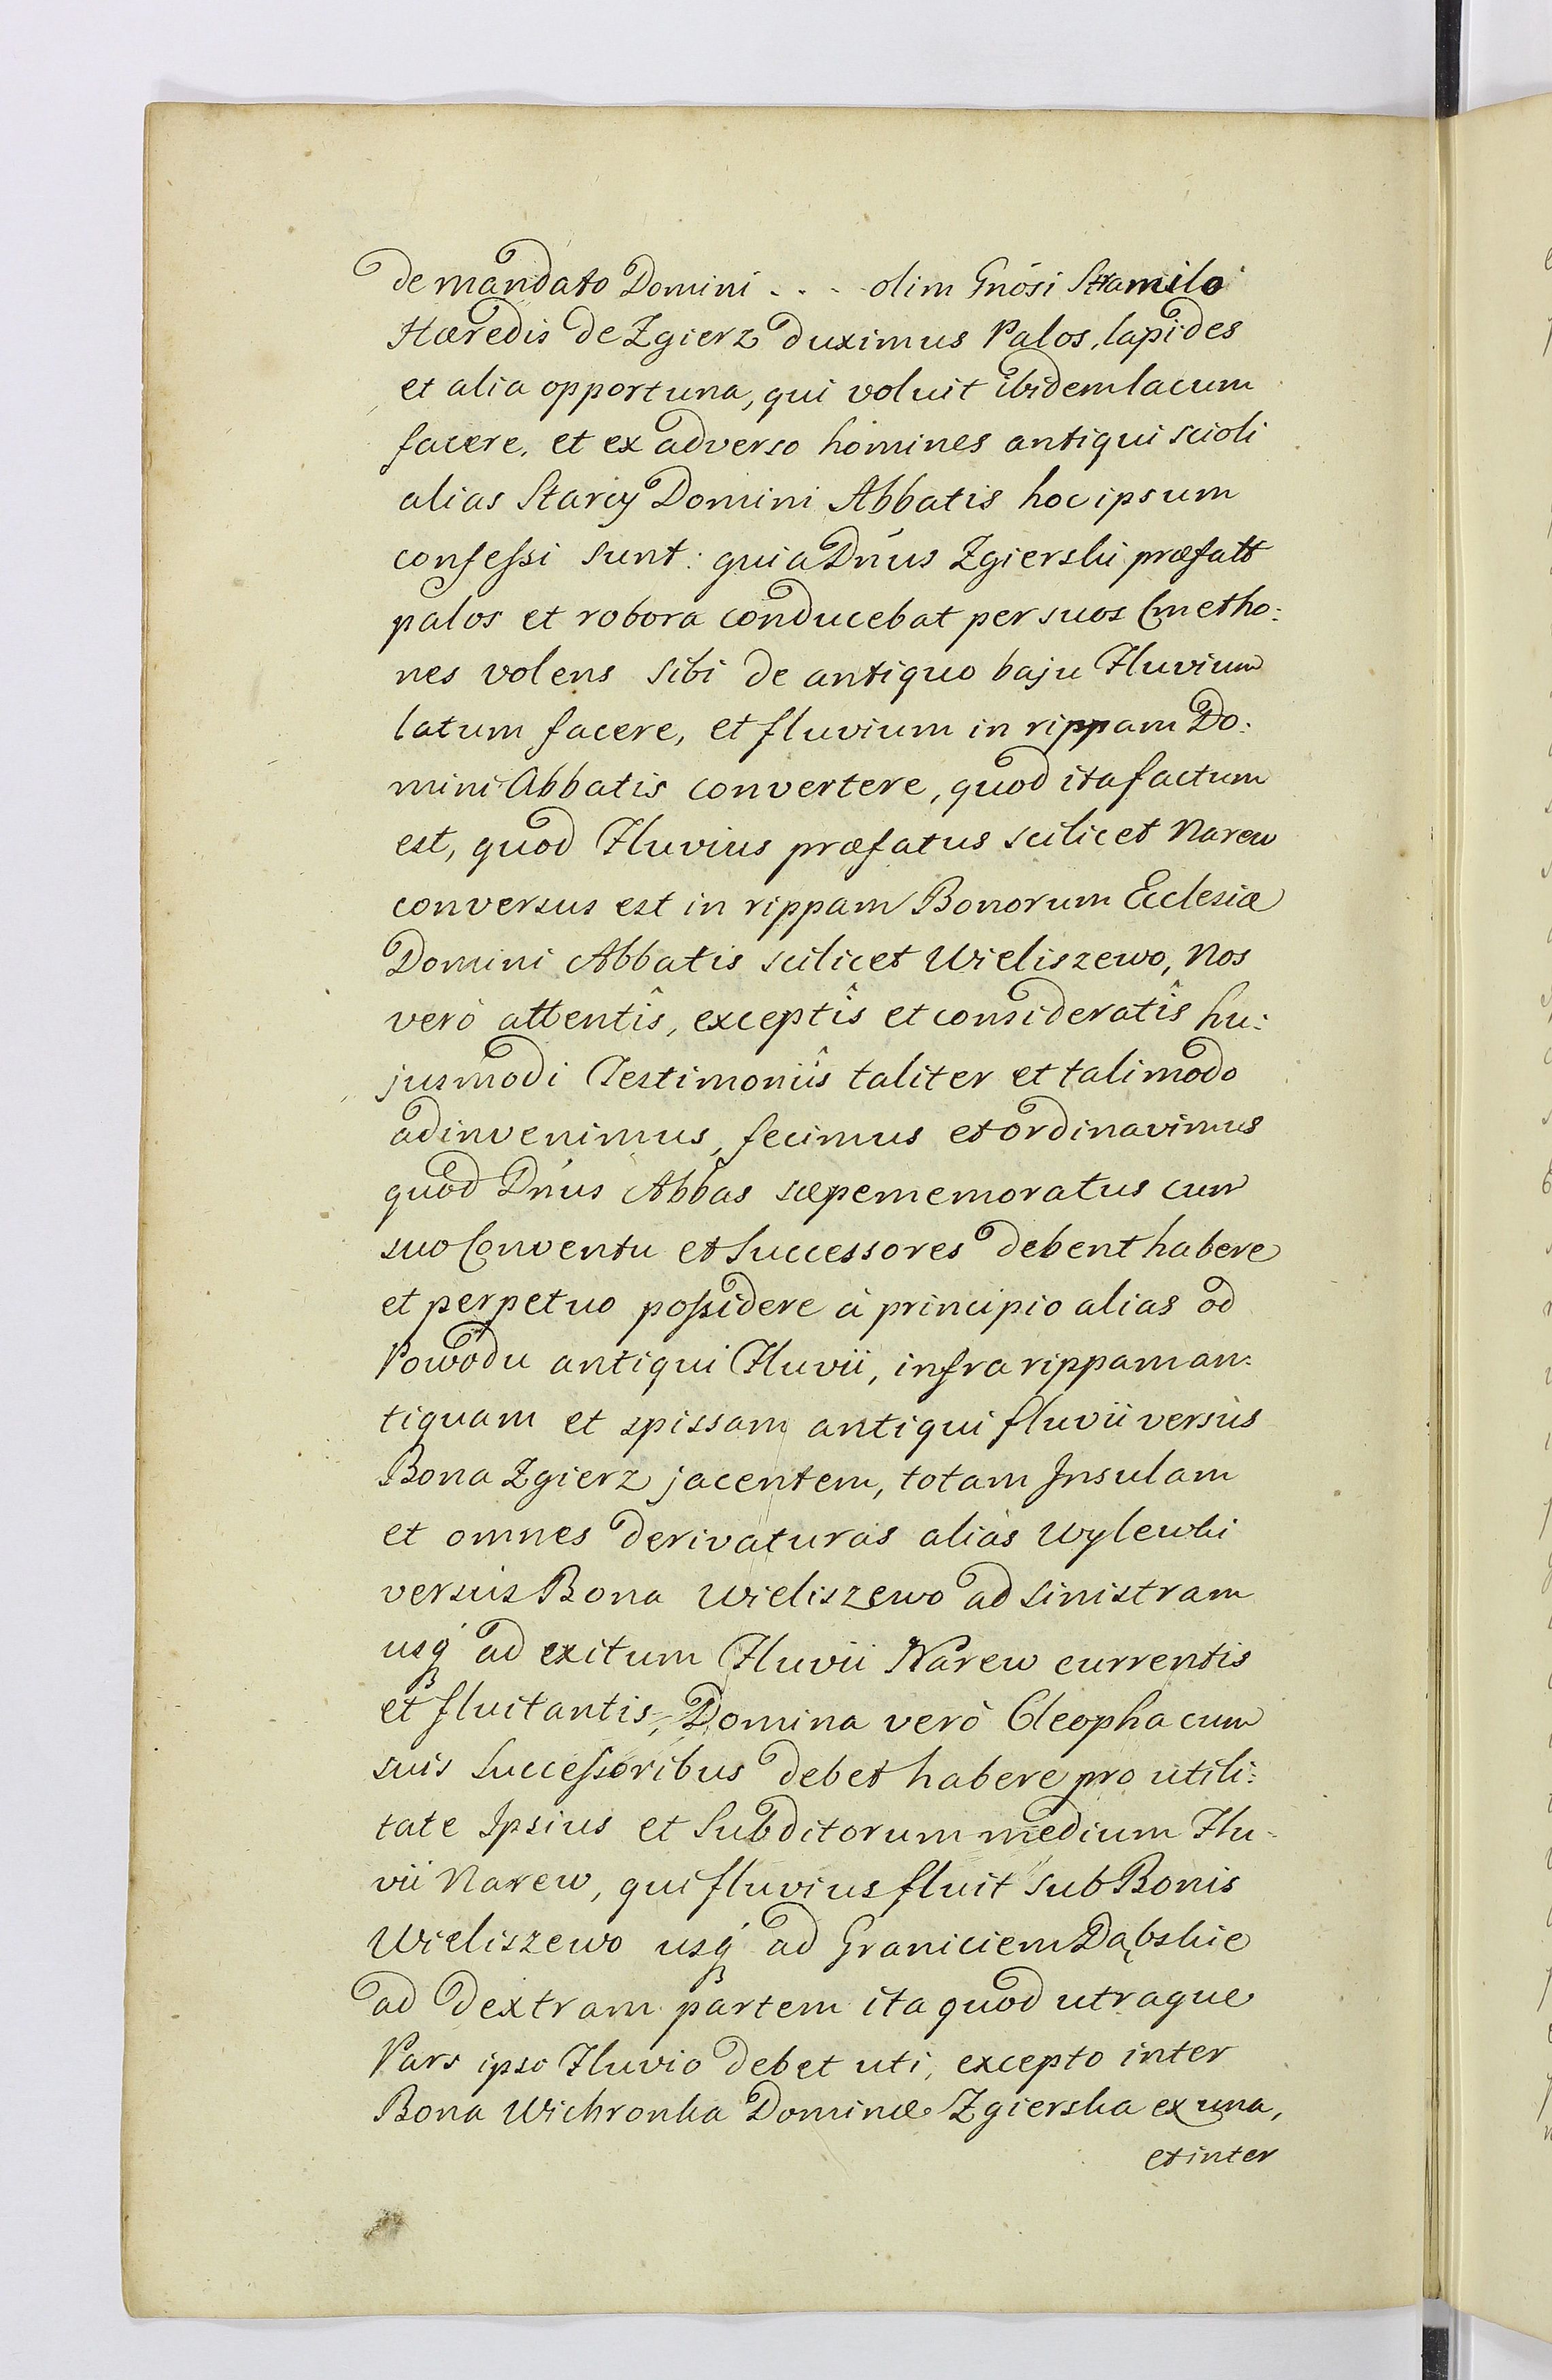 de mandato Domini . . . olim Gnósi Stramilo
Hæredis de Zgierz duximus Palos, lapides
et alia opportuna, qui voluit ibidem lacum
facere, et ex adverso homines antiqui scioli
alias Starcy Domini Abbatis hoc ipsum
confeſsi sunt: quia Dnús Zgierski præfatt
palos et robora conducebat per suos Cmetho:
nes volens sibi de antiquo baju Fluvium
latum facere, et fluvium in rippam Do:
mini Abbatis convertere, quod ita factum
est, quod Fluvius præfatus scilicet Narew
conversus est in rippam Bonorum Ecclesiæ
Domini Abbatis scilicet Wieliszewo, Nos
verò attentîs, exceptîs et consideratîs hu:
jusmodi Testimoniîs taliter et tali modo
adinvenimus, fecimus et ordinavimus
quod Dnús Abbas sæpememoratus cum
suo Conventu et Successores debent habere
et perpetuo poſsidere à principio alias od
Powodu antiqui Fluvii, infra rippam an:
tiquam et spissam antiqui fluvii versùs
Bona Zgierz jacentem, totam Insulam
et omnes derivaturas aliàs Wylewki
versùs Bona Wieliszewo ad sinistram
usq́ ad exitum Fluvii Narew currentis
et fluitantis, Domina verò Cleopha cum
suis Succeſsoribus debet habere pro utili:
tate Ipsius et Subditorum medium Flu-
vii Narew, qui fluvius fluit sub Bonis
Wieliszewo usq́ ad Graniciem Dąbskie
ad dextram partem ita quod utraque
Pars ipso Fluvio debet uti, excepto inter
Bona Wichronka Dominæ Zgierska ex una,
et inter